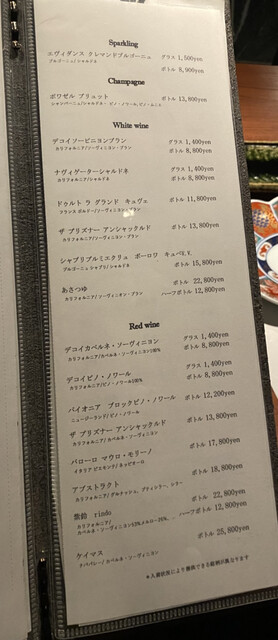 Sparkling
エヴィダンス クレマンドブルゴーニュ グラス 1,500yen
ブルゴーニュ/シャルドネ ボトル 8,900yen
Champagne
ボワゼル ブリュット ボトル 13,800yen
シャンパーニュ/シャルドネ・ピノ・ノワール、ピノ・ムニエ
White wine
デコイソービニヨンブラン グラス 1,400yen
カリフォルニア/ソーヴィニヨン・ブラン ボトル 8,800yen
ナヴィゲーターシャルドネ グラス 1,400yen
カリフォルニア/シャルドネ ボトル 8,800yen
ドゥルト ラ グランド キュヴェ ボトル 11,800yen
フランス ボルドー/ソーヴィニヨン・ブラン
ザ プリズナー アンシャックルド ボトル 13,800yen
カリフォルニア/シャルドネ
シャブリプルミエクリュ ボーロワ キュベV.V.
ブルゴーニュ シャブリ/シャルドネ ボトル 15,800yen
あさつゆ ボトル 22,800yen
カリフォルニア/ソーヴィニヨン・ブラン ハーフボトル 12,800yen
Red wine
デコイカベルネ・ソーヴィニヨン グラス 1,400yen
カリフォルニア/カベルネ・ソーヴィニヨン100% ボトル 8,800yen
デコイピノ・ノワール グラス 1,400yen
カリフォルニア/ピノ・ノワール100% ボトル 8,800yen
パイオニア ブロックピノ・ノワール ボトル 12,200yen
ニュージーランド/ピノ・ノワール
ザ プリズナー アンシャックルド ボトル 13,800yen
カリフォルニア/カベルネ・ソーヴィニヨン
バローロ マウロ・モリーノ ボトル 17,800yen
イタリア ピエモンテ/ネッビオーロ
アブストラクト ボトル 18,800yen
カリフォルニア/グルナッシュ、プティシラー、シラー
紫鈴 rindo ボトル 22,800yen
カリフォルニア/ ハーフボトル 12,800yen
カベルネ・ソーヴィニヨン53%メルロー
ケイマス ボトル 25,800yen
ナパバレー/カベルネ・ソーヴィニヨン
*入荷状況により御飲できる銘柄が異なります